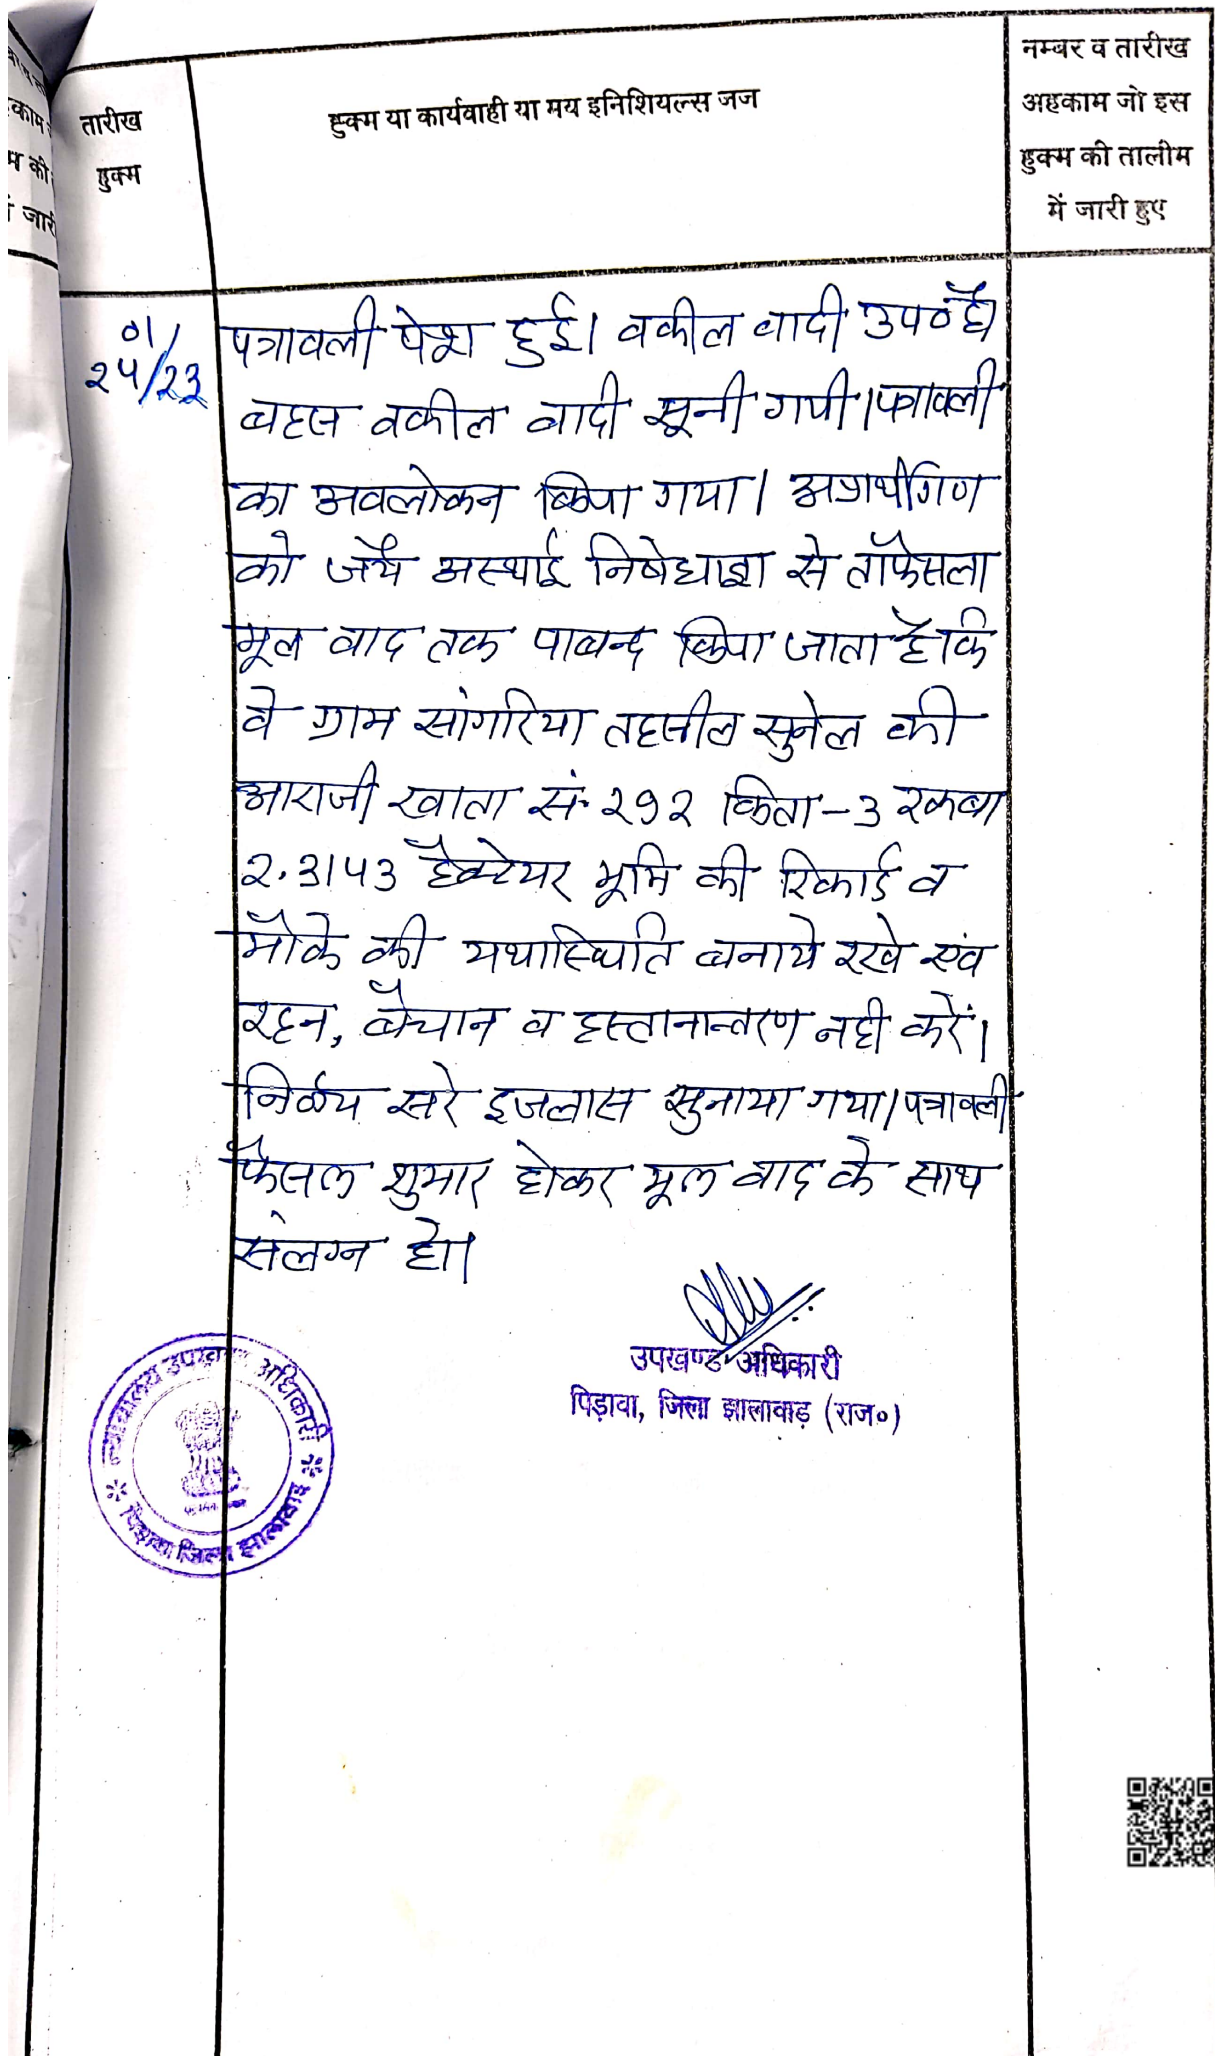 तारीख
हुक्म
हुक्म या कार्यवाही या मय इनिशियल्स जज
नम्बर व तारीख
अहकाम जो इस
हुक्म की तालीम
में जारी हुए
01/
24/23
पत्रावली पेश हुई। वकील वादी उप० है।
बहस वकील वादी सूनी गयी। पत्रावली
का अवलोकन किया गया। अप्रार्थीगण
को जर्ये अस्थाई निषेधाज्ञा से ताफैसला
मूल वाद तक पाबन्द किया जाता है कि
वे ग्राम सांगरिया तहसील सुनेल की
आराजी खाता सं. 292 किता-3 रकबा
2.3143 हैक्टेयर भूमि की रिकार्ड व
मौके की यथास्थिति बनाये रखे एंव
रहन, बैचान व हस्तानान्तरण नही करें।
निर्णय सरे इजलास सुनाया गया। पत्रावली
फैसल शुमार होकर मूल वाद के साथ
संलग्न हो।
उपखण्ड अधिकारी
पिड़ावा, जिला झालावाड़ (राज०)
न्यायालय उपखण्ड अधिकारी
पिड़ावा जिला झालावाड़